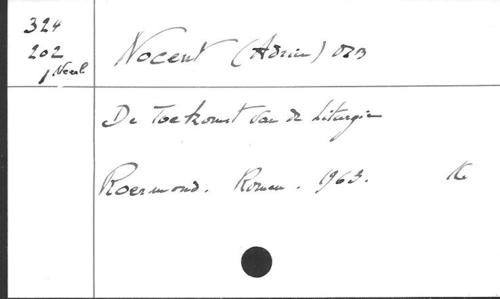 324
202
/ Neerl.
Nocent (Adrien) OSB
De Toekomst van de Liturgie
Roermond. Romen. 1963. K